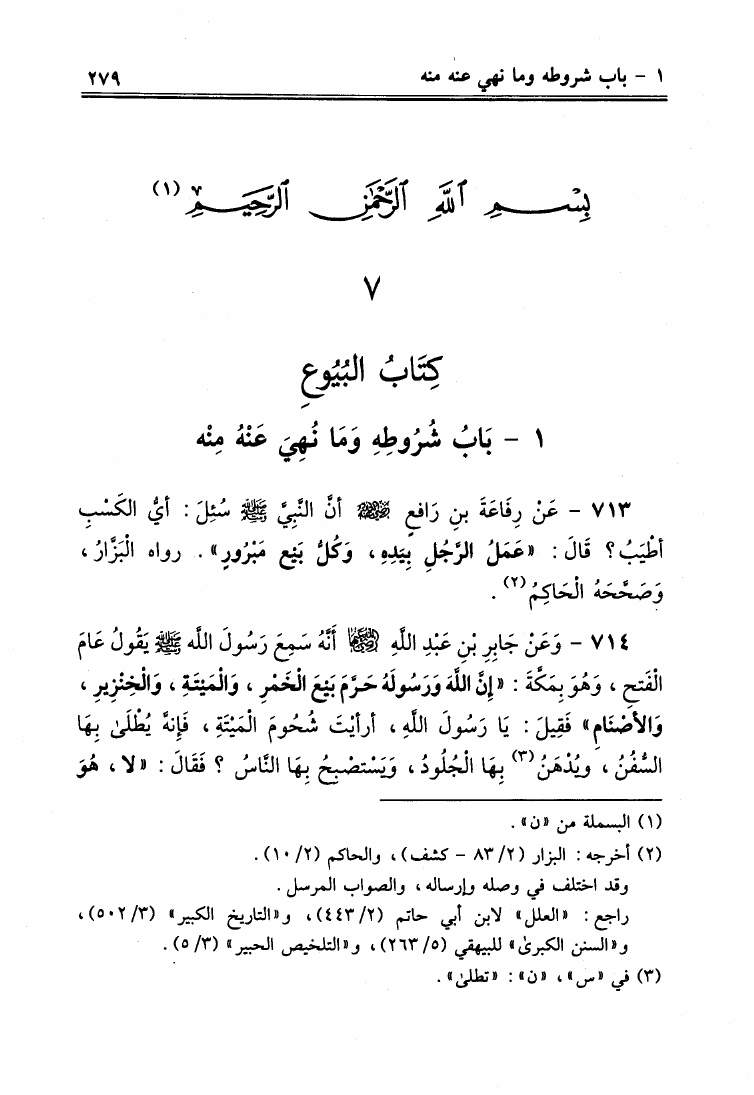 ١ - باب شروطه وما نهي عنه منه ٢٧٩
بِسْمِ اللَّهِ الرَّحْمَٰنِ الرَّحِيمِ (١)
٧
كِتَابُ البُيُوعِ
١ - بَابُ شُرُوطِهِ وَمَا نُهِيَ عَنْهُ مِنْه
٧١٣ - عَنْ رِفَاعَةَ بنِ رَافعٍ رضي الله عنه أنَّ النَّبِيَّ ﷺ سُئِلَ: أيُّ الكَسْبِ
أطْيَبُ؟ قَالَ: «عَمَلُ الرَّجُلِ بِيَدِهِ، وَكُلُّ بَيْعٍ مَبْرُورٍ». رواه الْبَزَّارُ،
وَصَحَّحَهُ الْحَاكِمُ (٢).
٧١٤ - وَعَنْ جَابِرِ بْنِ عَبْدِ اللَّهِ رضي الله عنهما أنَّهُ سَمِعَ رَسُولَ الله ﷺ يَقُولُ عَامَ
الْفَتحِ، وَهُوَ بِمَكَّةَ: «إنَّ اللَّهَ وَرَسُولَهُ حَرَّمَ بَيْعَ الْخَمْرِ، وَالْمَيْتَةِ، وَالْخِنْزِيرِ،
وَالأصْنَامِ» فَقِيلَ: يَا رَسُولَ اللَّهِ، أرأيْتَ شُحُومَ الْمَيْتَةِ، فَإنهُ يُطْلَىٰ بِهَا
السُّفُنُ، ويُدْهَنُ (٣) بِهَا الْجُلُودُ، وَيَسْتَصْبِحُ بِهَا النَّاسُ؟ فَقَالَ: «لا، هُوَ
(١) البسملة من «ن».
(٢) أخرجه: البزار (٢/ ٨٣ - كشف)، والحاكم (٢/ ١٠).
وقد اختلف في وصله وإرساله، والصواب المرسل.
راجع: «العلل» لابن أبي حاتم (٢/ ٤٤٣)، و«التاريخ الكبير» (٣/ ٥٠٢)،
و«السنن الكبرىٰ» للبيهقي (٥/ ٢٦٣)، و«التلخيص الحبير» (٣/ ٥).
(٣) في «س»، «ن»: «تطلىٰ».